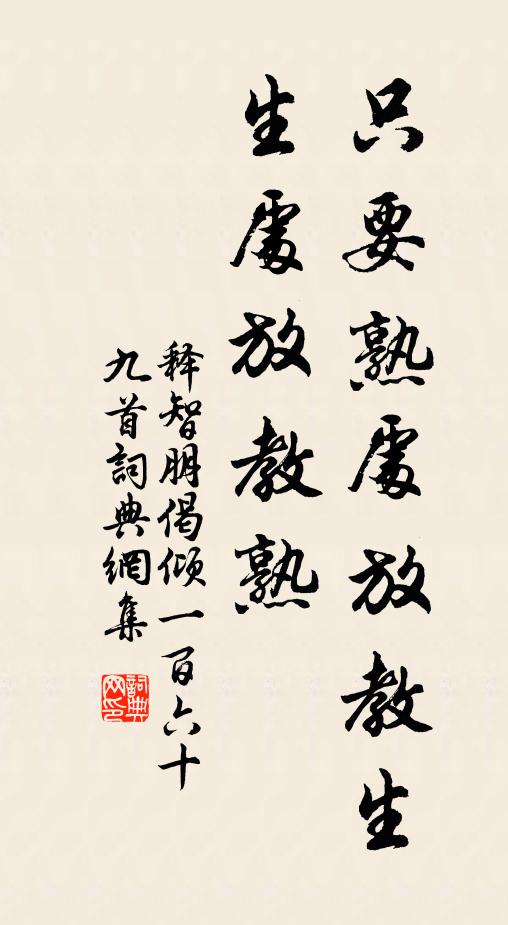 只要熟處放教生
生處放教熟
釋智朋偈傾一百六十
九首詞典網集
詞典
网印